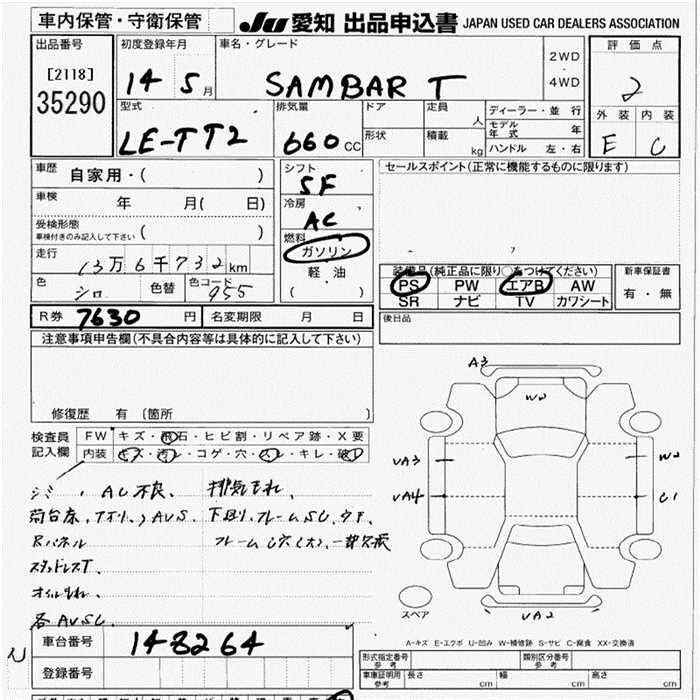 車内保管・守衛保管 JU 愛知 出品申込書 JAPAN USED CAR DEALERS ASSOCIATION
出品番号 初度登録年月 車名・グレード 2WD ・ 4WD 評価点
[2118] 14 5月 SAMBAR T 2
35290 型式 排気量 ドア 定員 人 ディーラー・並行 外装 内装
LE-TT2 660 CC 形状 積載 kg モデル年式 年 E C
ハンドル 左・右
車歴 自家用・( ) シフト 5F セールスポイント(正常に機能するものに限ります)
車検 年 月( 日) 冷房 AC
受検形態 車検付きのみ記入して下さい ( ) 燃料 ガソリン
走行 13万6千732km 軽油 装備品(純正品に限り○をつけてください) 新車保証書
色 シロ 色替 色コード 955 ( ) PS PW エアB AW 有・無
SR ナビ TV カワシート
R券 7630 円 名変期限 月 日 後日品
注意事項申告欄(不具合内容等は具体的に記入して下さい)
修復歴 有(箇所 )
検査員 FW キズ・飛石・ヒビ割・リペア跡・X要
記入欄 内装 キズ・汚レ・コゲ・穴・スレ・キレ・破レ
シミ、AC不良、排気もれ、
荷台床、アオリ、AVS、下回り、フレームSC、
Rパネル フレームC穴(大)、一部欠損
スタッドレスT、
オイルもれ、
各AVSC、
A3
W2
VA3 W2
VA4 C1
スペア VA2
A-キズ E-エクボ U-凹み W-補修跡 S-サビ C-腐食 XX-交換済
車台番号 148264
登録番号
形式指定番号 参考 類別区分番号 参考
車庫証明用 参考 長さ cm 幅 cm 高さ cm